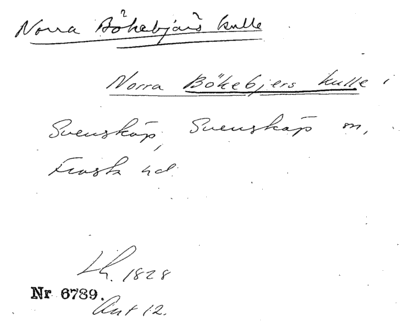 Norra Bökebjärs kulle
Norra Bökebjers kulle i
Svensköp, Svensköps sn,
Frosta hd
Lh. 1828
Nr 6789.
Akt 12.